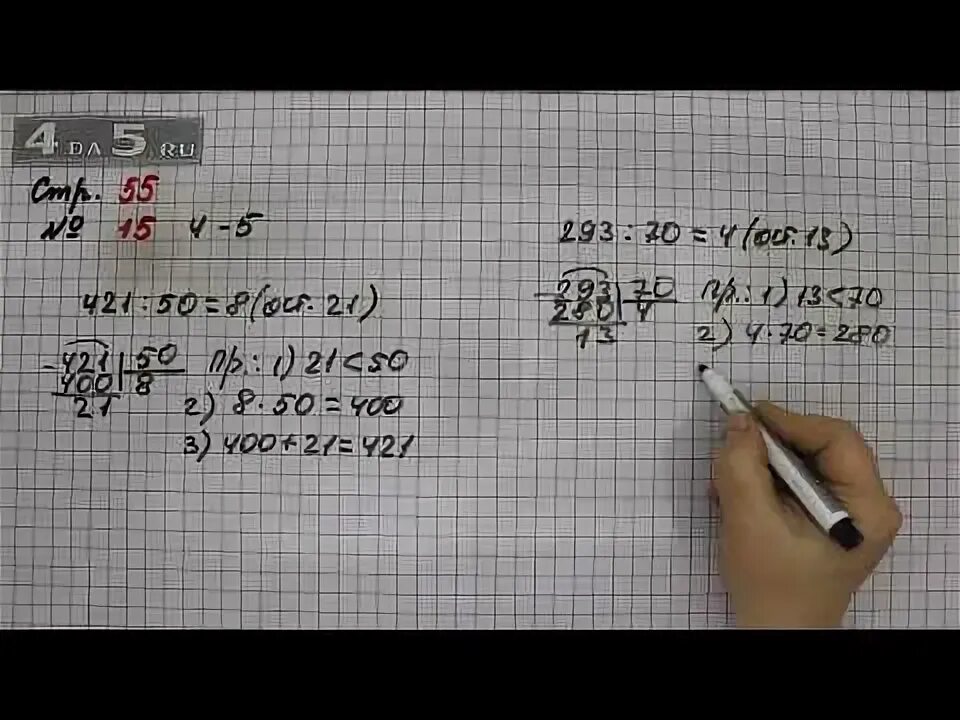 4 DA 5 .RU
Стр. 55
№ 15 4-5
421 : 50 = 8 (ост. 21)
- 421 | 50
400 | 8
21
Пр.: 1) 21 < 50
2) 8 · 50 = 400
3) 400 + 21 = 421
293 : 70 = 4 (ост. 13)
- 293 | 70
280 | 4
13
Пр.: 1) 13 < 70
2) 4 · 70 = 280